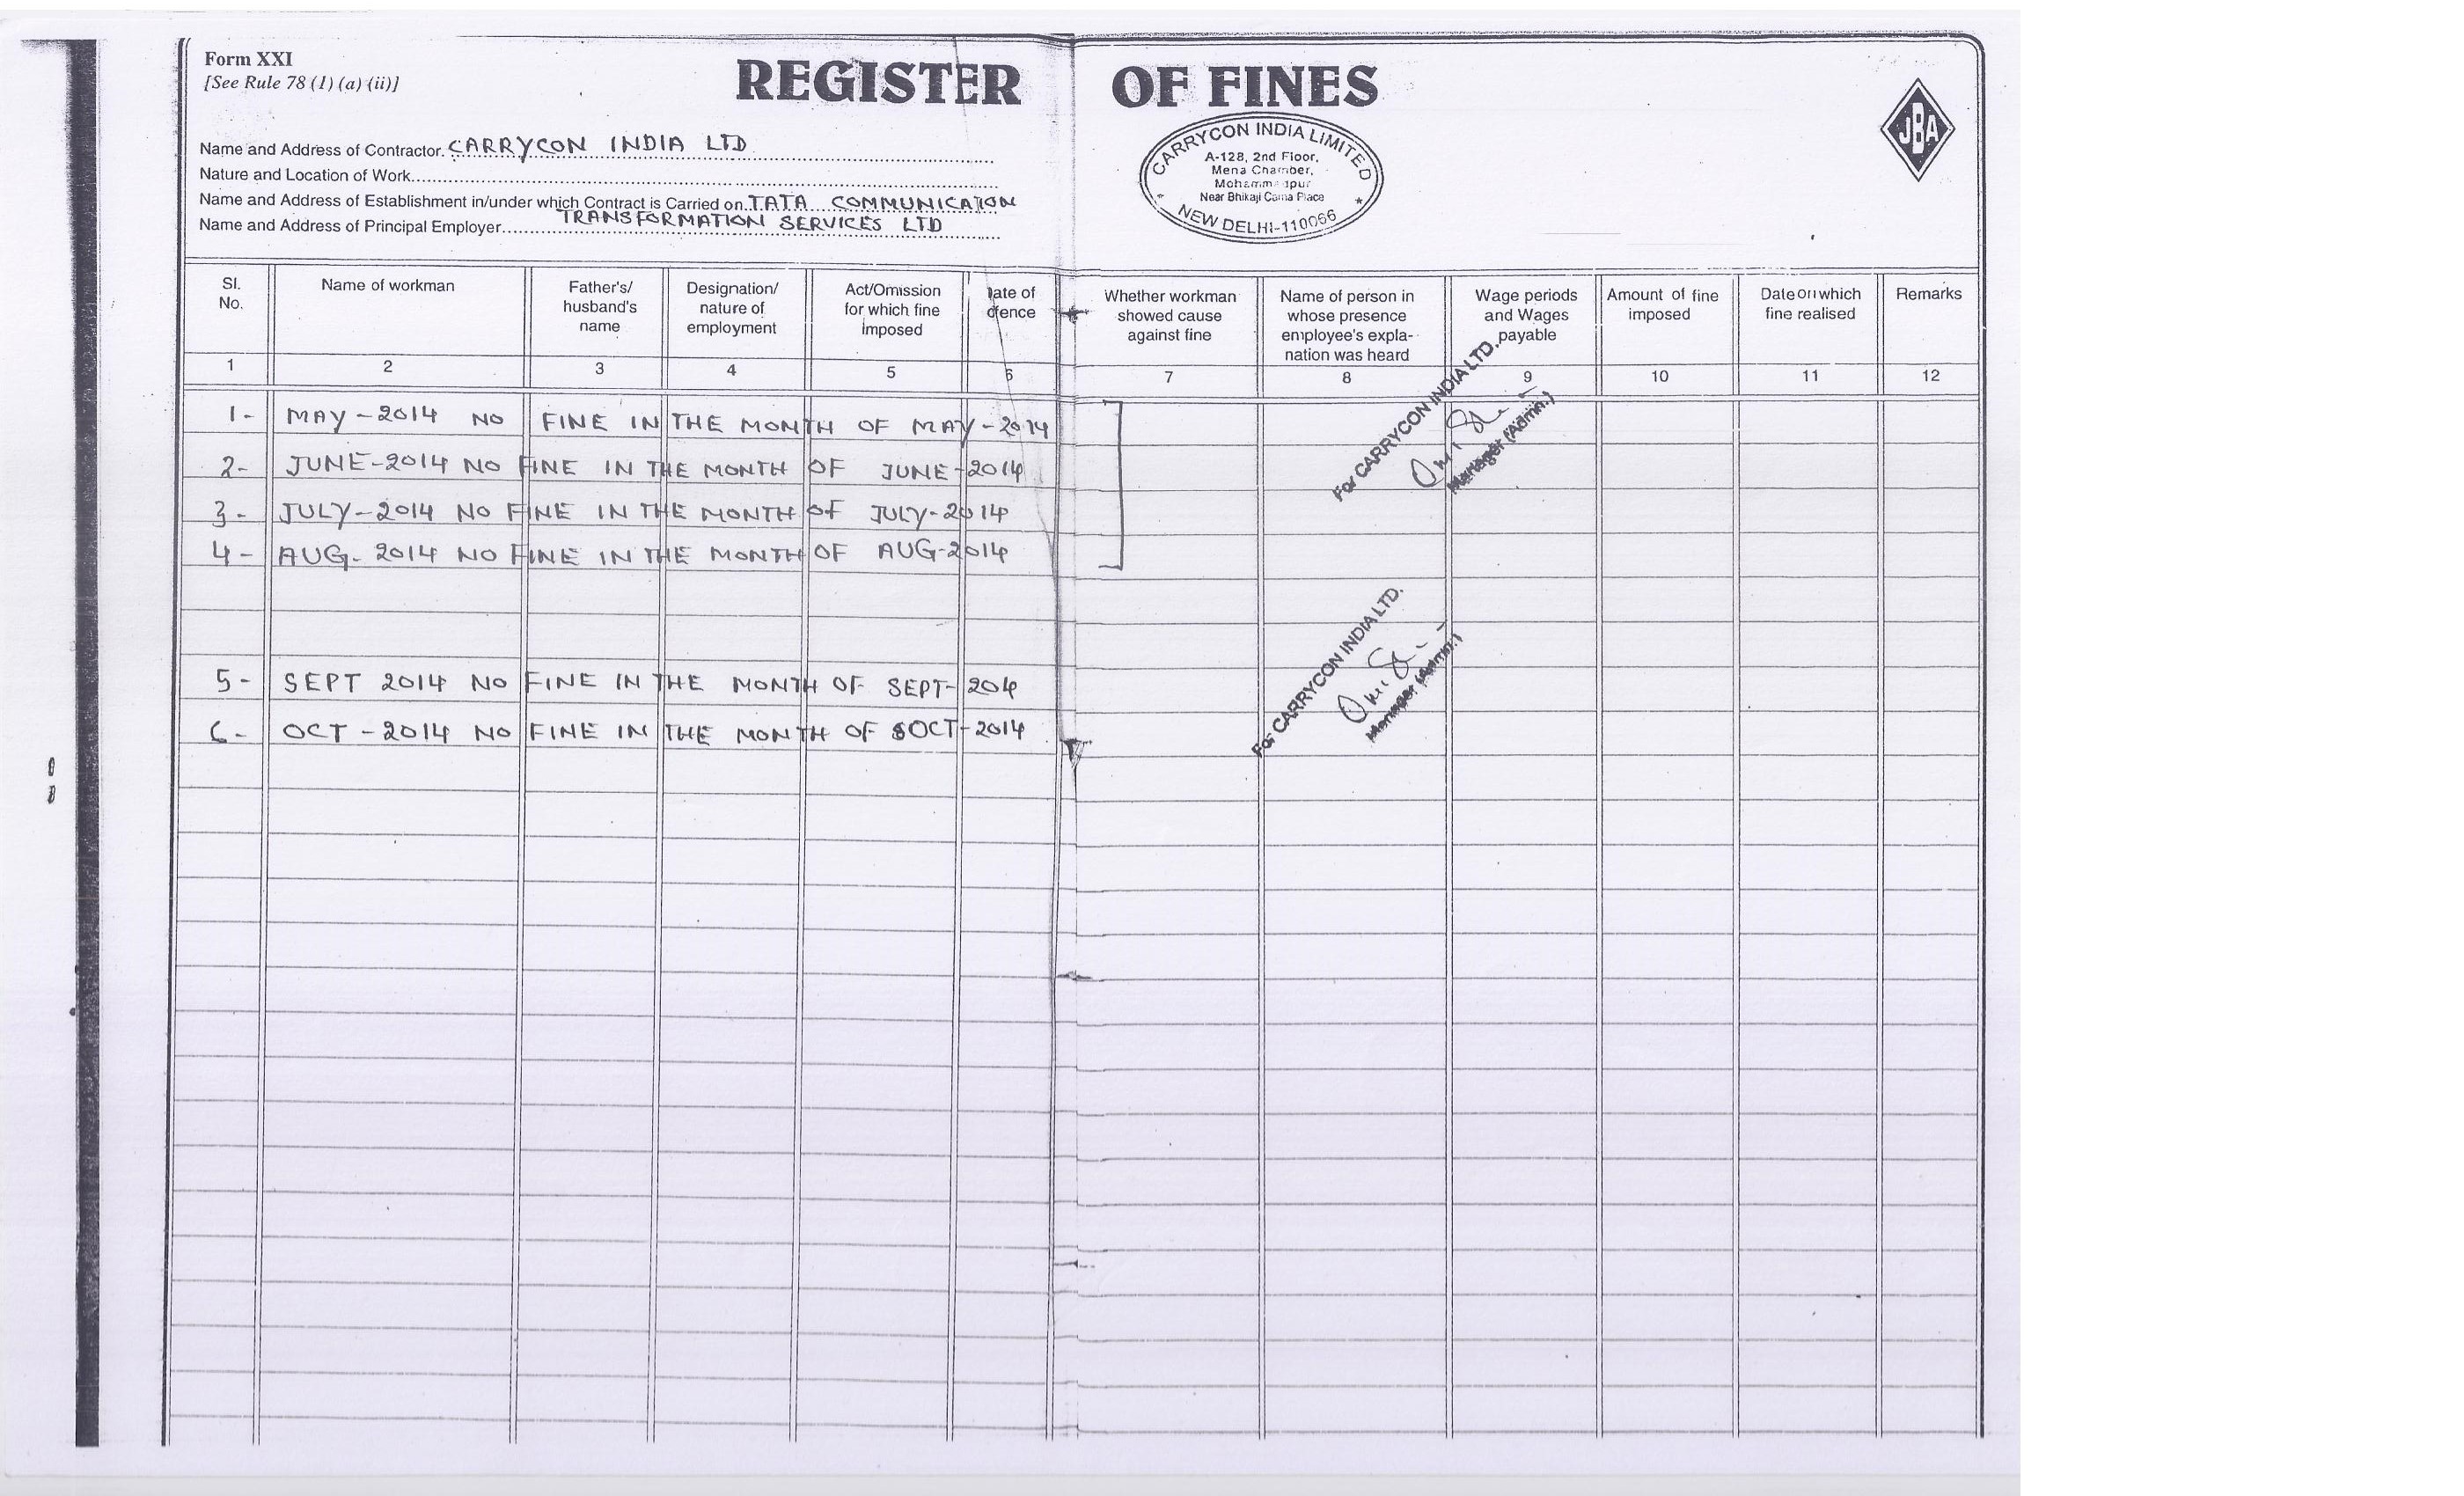 Form XXI
[See Rule 78 (1) (a) (ii)]
REGISTER OF FINES
JBA
Name and Address of Contractor. CARRYCON INDIA LTD
Nature and Location of Work
Name and Address of Establishment in/under which Contract is Carried on. TATA COMMUNICATION
TRANSFORMATION SERVICES LTD
Name and Address of Principal Employer
CARRYCON INDIA LIMITED
A-128, 2nd Floor,
Mena Chamber,
Near Bhikaji Cama Place
NEW DELHI-110066
Sl. No.
Name of workman
Father's/ husband's name
Designation/ nature of employment
Act/Omission for which fine imposed
ate of fence
Whether workman showed cause against fine
Name of person in whose presence employee's expla- nation was heard
Wage periods and Wages payable
Amount of fine imposed
Date on which fine realised
Remarks
1 2 3 4 5 6 7 8 9 10 11 12
1- MAY-2014 NO FINE IN THE MONTH OF MAY-2014
2- JUNE-2014 NO FINE IN THE MONTH OF JUNE-2014
3- JULY-2014 NO FINE IN THE MONTH OF JULY-2014
4- AUG-2014 NO FINE IN THE MONTH OF AUG-2014
For CARRYCON INDIA LTD.
Manager (Admn.)
5- SEPT 2014 NO FINE IN THE MONTH OF SEPT-204
6- OCT-2014 NO FINE IN THE MONTH OF OCT-2014
For CARRYCON INDIA LTD.
Manager (Admn.)